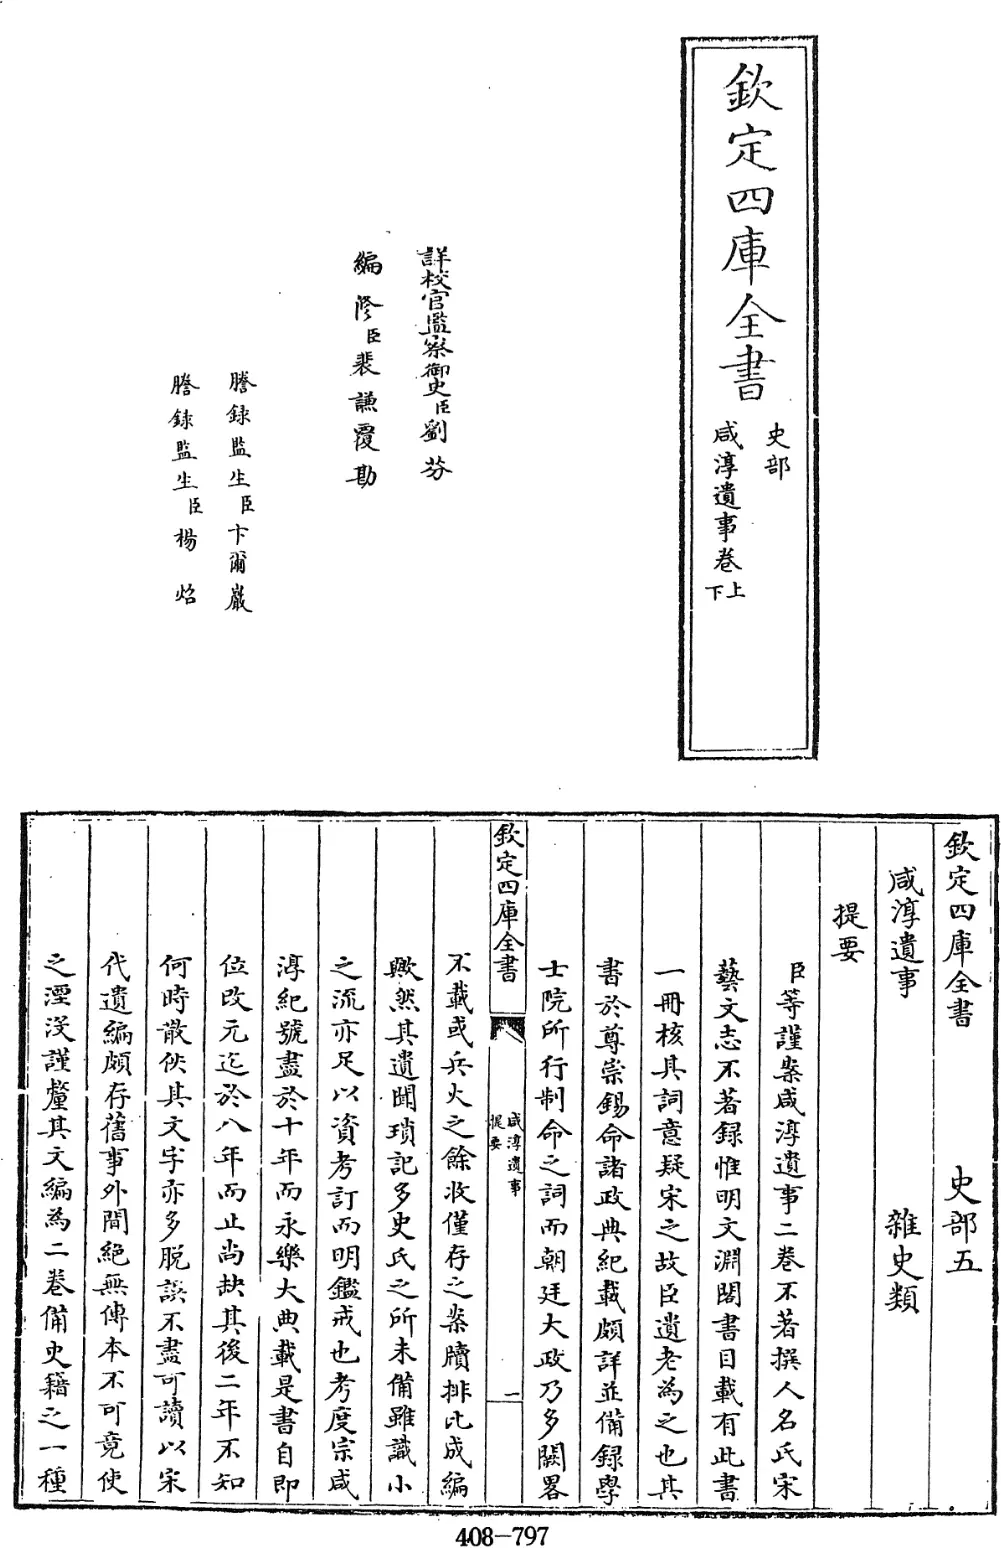 欽定四庫全書
史部
咸淳遺事卷上
下
詳校官監察御史臣劉芬
編修臣裴謙覆勘
謄錄監生臣卞爾巖
謄錄監生臣楊炤
欽定四庫全書 史部五
咸淳遺事 雜史類
提要
臣等謹案咸淳遺事二卷不著撰人名氏宋
藝文志不著録惟明文淵閣書目載有此書
一冊核其詞意疑宋之故臣遺老為之也其
書於尊崇錫命諸政典紀載頗詳並備録學
士院所行制命之詞而朝廷大政乃多闕畧
欽定四庫全書
咸淳遺事
提要
一
不載或兵火之餘收僅存之案牘排比成編
歟然其遺聞瑣記多史氏之所未備雖識小
之流亦足以資考訂而明鑑戒也考度宗咸
淳紀號盡於十年而永樂大典載是書自即
位改元迄於八年而止尚缺其後二年不知
何時散佚其文字亦多脱誤不盡可讀以宋
代遺編頗存舊事外間絶無傳本不可竟使
之湮没謹釐其文編為二卷備史籍之一種
408-797